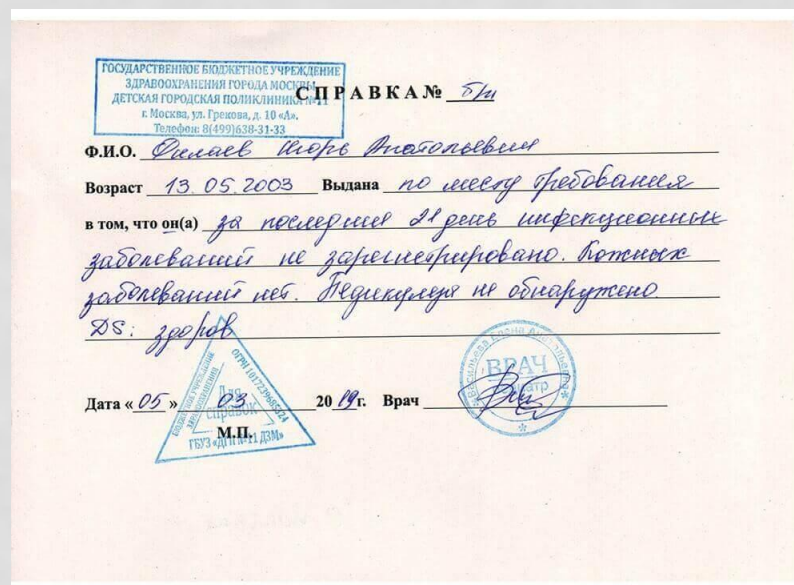 ГОСУДАРСТВЕННОЕ БЮДЖЕТНОЕ УЧРЕЖДЕНИЕ
ЗДРАВООХРАНЕНИЯ ГОРОДА МОСКВЫ
ДЕТСКАЯ ГОРОДСКАЯ ПОЛИКЛИНИКА №11
г. Москва, ул. Грекова, д. 10 «А».
Телефон: 8(499)638-31-33
СПРАВКА № б/н
Ф.И.О. Филаев Игорь Анатольевич
Возраст 13.05.2003 Выдана по месту требования
в том, что он(а) за последний 21 день инфекционных
заболеваний не зарегистрировано. Кожных
заболеваний нет. Педикулеза не обнаружено.
DS: здоров
Васильева Елена
ВРАЧ
Дата «05» 03 2019г. Врач
ОГРН 1017239685324
Для
справок
М.П.
ГБУЗ «ДГП №11 ДЗМ»